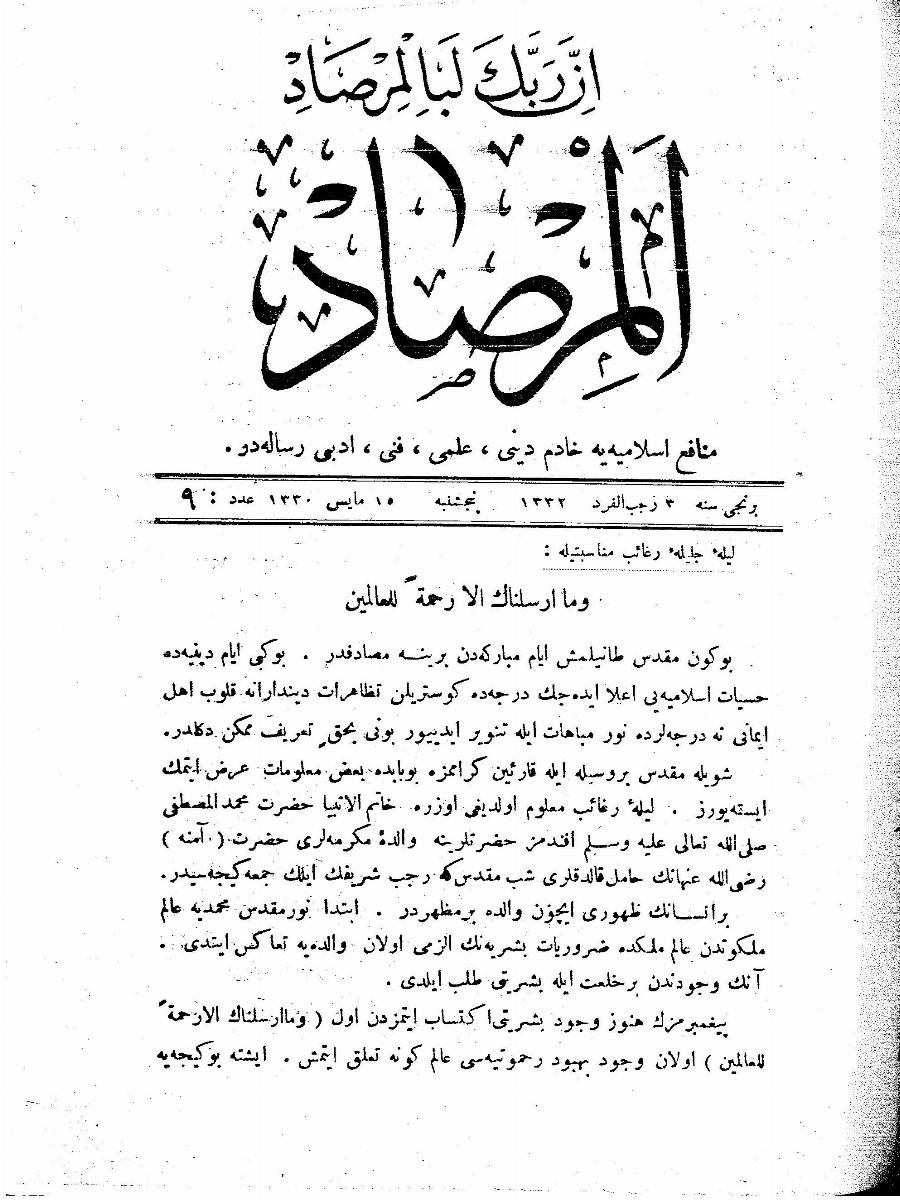 اِنَّ رَبَّكَ لَبِالْمِرْصَادِ
اَلْمِرْصَادْ
منافع اسلاميه‌يه خادم دينى ، علمى ، فنى ، ادبى رساله‌در .
برنجى سنه ٣ رجب‌الفرد ١٣٣٢ پنجشنبه ١٥ مايس ١٣٣٠ عدد : ٩
ليلهٔ جليلهٔ رغائب مناسبتيله :
وما ارسلناك الا رحمةً للعالمين
بوكون مقدس طانيلمش ايام مباركه‌دن برينه مصادفدر . بوكبى ايام دينيه‌ده
حسيات اسلاميه‌يى اعلا ايده‌جك درجه‌ده كوستريلن تظاهرات ديندارانه قلوب اهل
ايمانى نه درجه‌لرده نور مباهات ايله تنوير ايدييور بونى بحقٍ تعريف ممكن دكلدر.
شويله مقدس بروسيله ايله قارئين كرامزه بوبابده بعض معلومات عرض ايتمك
ايسته‌يورز . ليلهٔ رغائب معلوم اولديغى اوزره خاتم الانبيا حضرت محمد المصطفى
صلى‌الله تعالى عليه وسلم افندمز حضرتلرينه والدهٔ مكرمه‌لرى حضرت ( آمنه )
رضى‌الله عنهانك حامل قالدقلرى شب مقدس‌كه رجب شريفك ايلك جمعه كيجه‌سيدر.
بر انسانك ظهورى ايچون والده بر مظهردر . ابتدا نور مقدس محمديه عالم
ملكوتدن عالم ملكده ضروريات بشريه‌نك الزمى اولان والده‌يه تعاكس ايتدى .
آنك وجودندن برخلعت ايله بشريتى طلب ايلدى .
پيغمبرمزك هنوز وجود بشريتى اكتساب ايتمزدن اول ( وماارسلناك الارحمةً
للعالمين ) اولان وجود بهبود رحموتيه‌سى عالم كونه تعلق ايتمش . ايشته بوكيجه‌يه